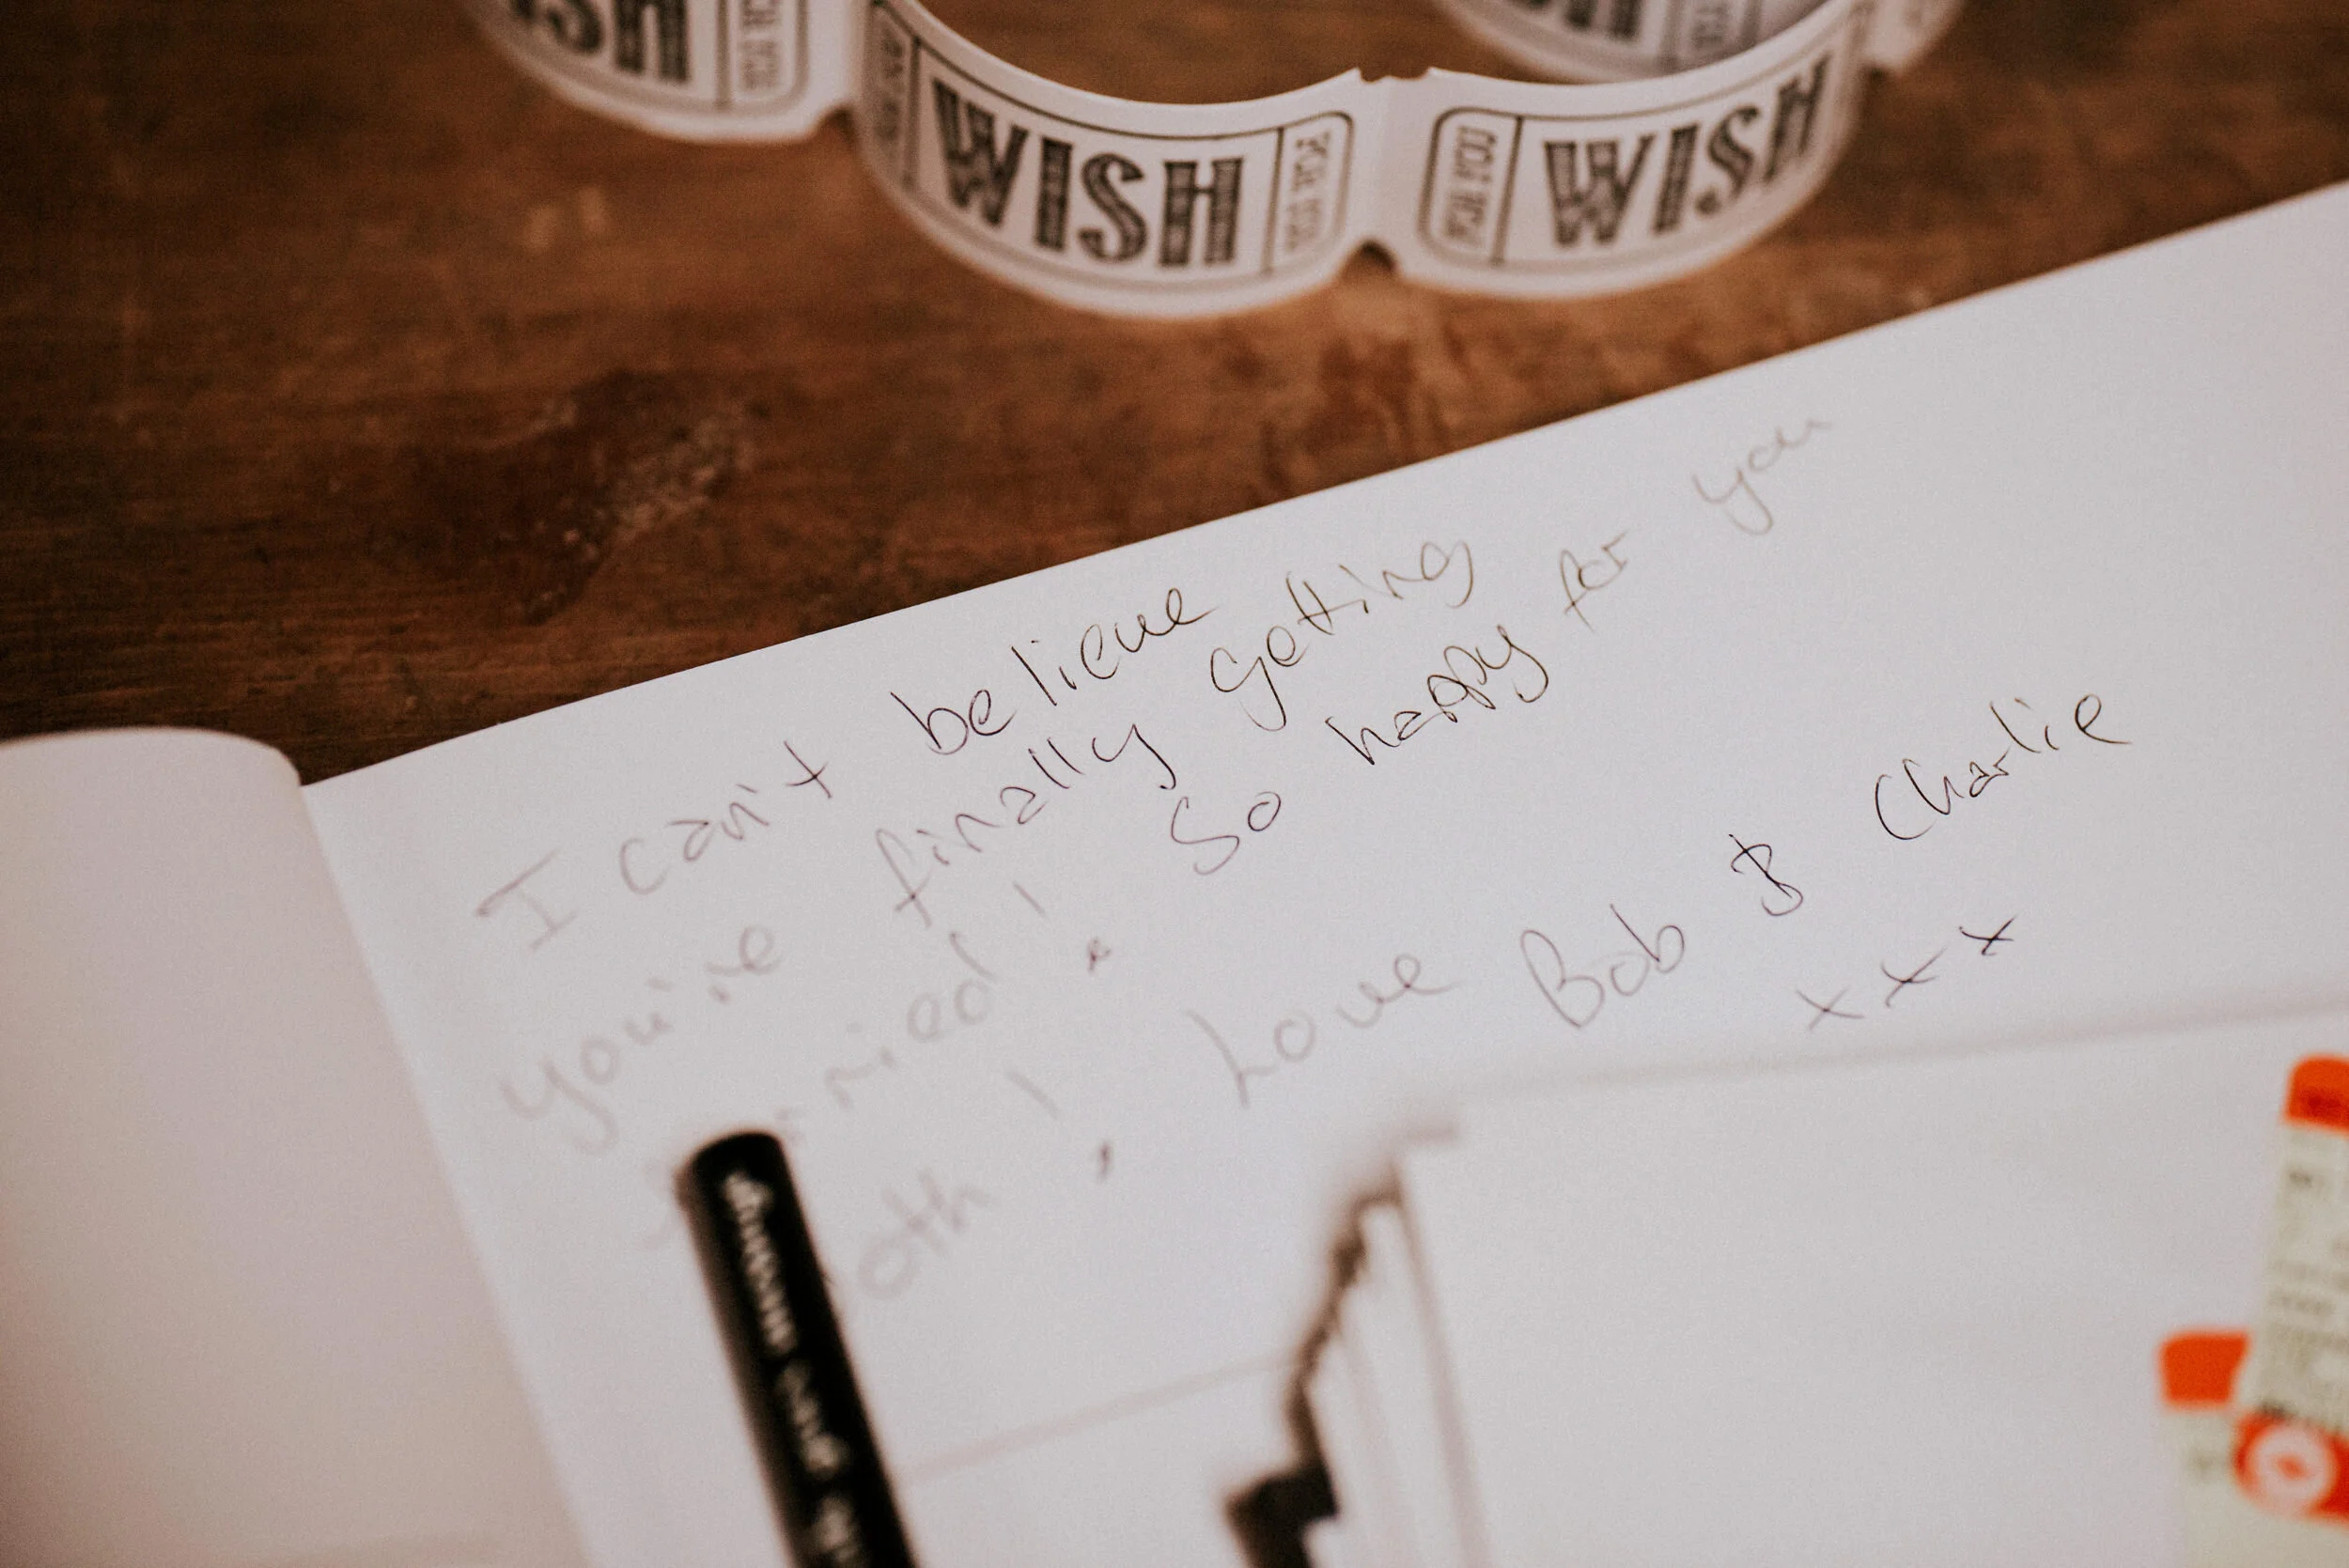 WISH
FOR YOU
WISH
FOR YOU
WISH
I can't believe
you're finally getting
married! So happy for you
both! Love Bob & Charlie
x x x